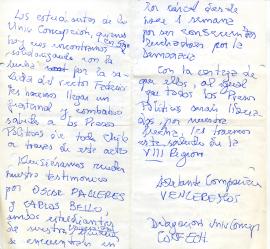 Los estudiantes de la
Univ Concepción, quienes
hoy nos encontramos
solidarizando con la
lucha por la sa-
lida del rector Federici
les hacemos llegar un
fraternal y combativo
saludo a los Presos
Políticos de todo Chile
a través de este acto
Quisiéramos rendir
nuestro testimonio
por OSCAR PAGERES
y CARLOS BELLO,
ambos estudiantes
de nuestra
se encuentran en
por cárcel desde
hace 1 semana
por ser consecuentes
luchadores por la
Democracia
Con la certeza de
que ellos, al igual
que todos los Presos
Políticos serán libera-
dos por nuestra
lucha, les traemos
este saludo de la
VIII Región
Adelante Compañeros
VENCEREMOS
Delegación Univ Concep